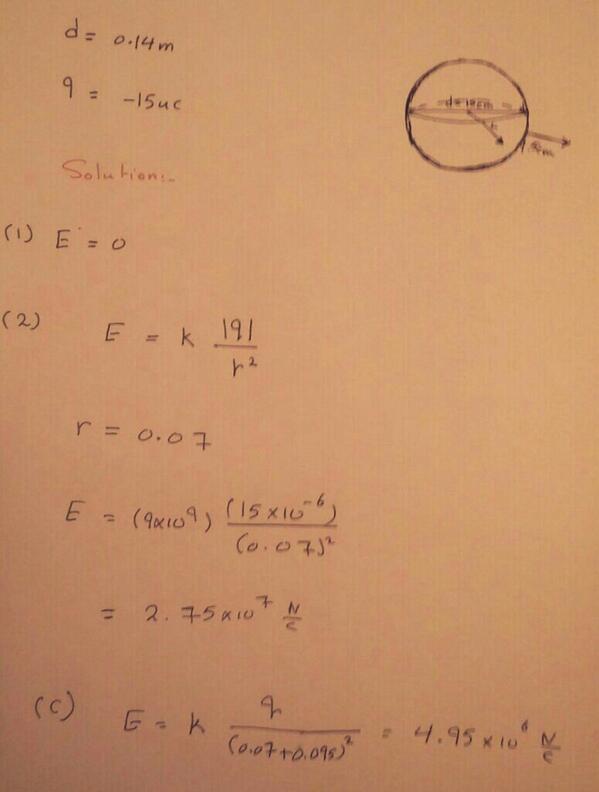 d = 0.14m
q = -15uc
Solution:-
(1) E = 0
(2) E = k |q| / r²
r = 0.07
E = (9x10⁹) (15 x10⁻⁶) / (0.07)²
= 2.75x10⁷ N/C
(C) E = k q / (0.07+0.095)² = 4.95 x10⁶ N/C